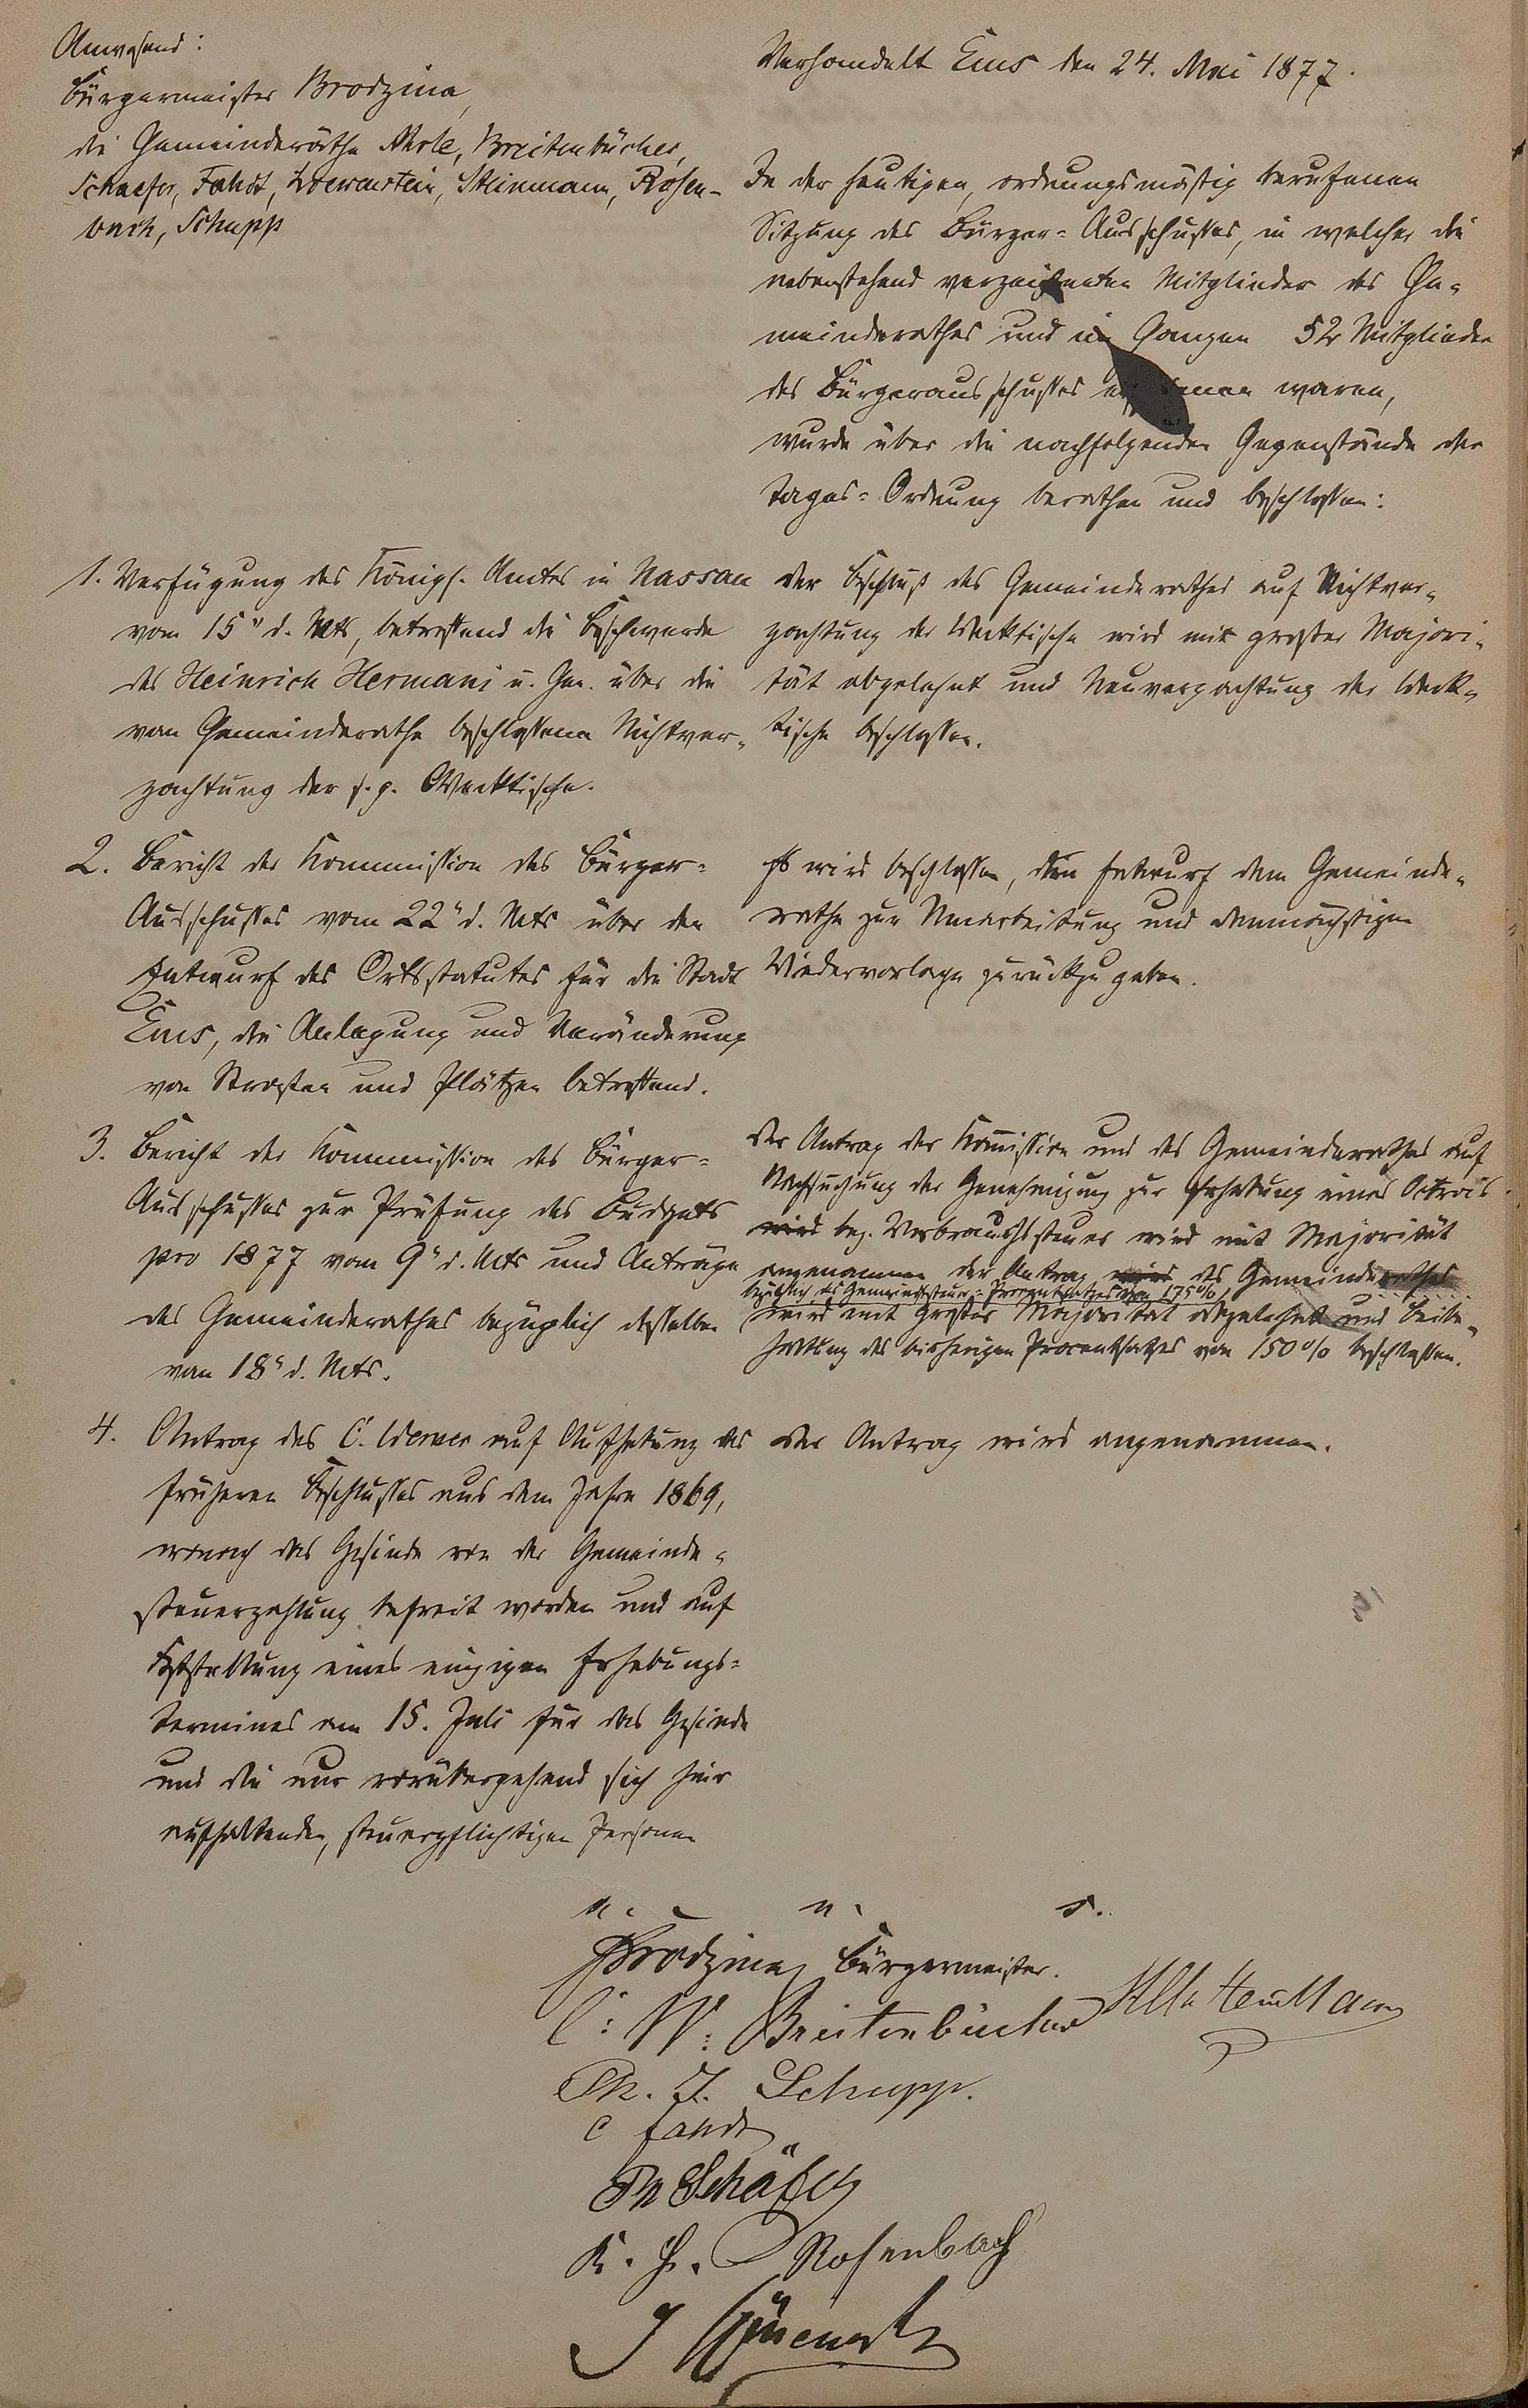 Anwesend:
Bürgermeister Brodzina,
die Gemeinderäthe Ahrle, Breitenbücher,
Schaefer, Fahdt, Loewenstein, Steinmann, Rosen-
bach, Schupp
Verhandelt Ems den 24. Mai 1877.
In der heutigen, ordnungsmäßig berufenen
Sitzung des Bürger-Ausschusses, in welcher die
nebenstehend verzeichneten Mitglieder des Ge-
meinderathes und im Ganzen 52 Mitglieder
des Bürgerausschusses erschienen waren,
wurde über die nachfolgenden Gegenstände der
Tages-Ordnung berathen und beschlossen:
1. Verfügung des Königl. Amtes in Nassau
vom 15" d. Mts, betreffend die Beschwerde
des Heinrich Hermani u. Gen. über die
vom Gemeinderathe beschlossene Nichtver-
pachtung der s.g. Wecktische.
Der Beschluß des Gemeinderathes auf Nichtver-
pachtung der Wecktische wird mit großer Majori-
tät abgelehnt und Neuverpachtung der Weck-
tische beschlossen.
2. Bericht der Kommission des Bürger-
Ausschusses vom 22" d. Mts über den
Entwurf des Ortsstatutes für die Stadt
Ems, die Anlegung und Veränderung
von Straßen und Plätzen betreffend.
Es wird beschlossen, den Entwurf dem Gemeinde-
rathe zur Umarbeitung und demnächstigen
Wiedervorlage zurückzugeben.
3. Bericht der Kommission des Bürger-
Ausschusses zur Prüfung des Budgets
pro 1877 vom 9" d. Mts und Anträge
des Gemeinderathes bezüglich desselben
vom 18" d. Mts.
Der Antrag der Kommission und des Gemeinderathes auf
Nachsuchung der Genehmigung zur Erhebung eines Octrois
wird bez. Verbrauchssteuer wird mit Majorität
angenommen der Antrag wird des Gemeinderathes
bezüglich des Gemeindesteuer-Procentsatzes von 175%
wird mit großer Majorität abgelehnt und Beibe-
haltung des bisherigen Procentsatzes von 150% beschlossen.
4. Antrag des C. Werner auf Aufhebung des
früheren Beschlusses aus dem Jahre 1869,
wonach das Gesinde von der Gemeinde-
steuerzahlung befreit worden und auf
Feststellung eines einzigen Erhebungs-
termines am 15. Juli für das Gesinde
und die nur vorübergehend sich hier
aufhaltenden, steuerpflichtigen Personen
Der Antrag wird angenommen.
n. u. s.
Brodzina, Bürgermeister.
C: W: Breitenbücher
Ph. J. Schupp.
C Fahdt
Ph Schäfer
K. H. Rosenbach